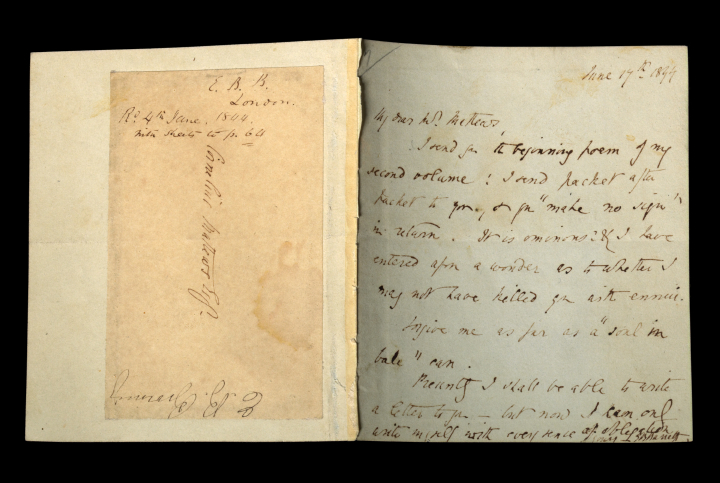 E. B. B.
London.
Rd. 4th June. 1844.
with sheets to p. 64
Cornelius Mathews Esqr.
June 17th 1844
My dear Mr. Mathews
I send you the beginning poem of my
second volume: I send packet after
packet to you, & you "make no sign"
in return. It is ominous? & I have
entered upon a wonder as to whether I
may not have killed you with ennui.
Forgive me as far as a "soul in
bale" can.
Presently I shall be able to write
a letter to you — but now I can only
write myself with every sense of obligation
yours E B Barrett